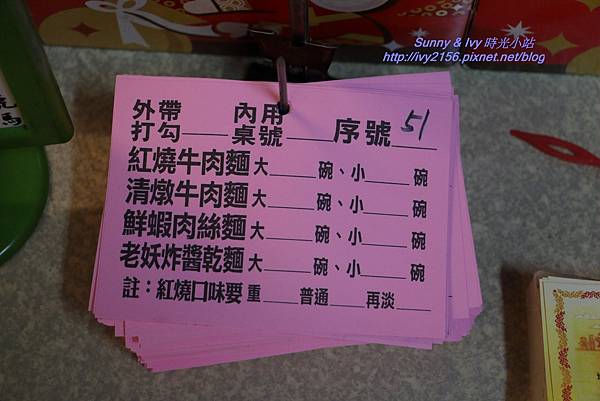 Sunny & Ivy 時光小站
http://ivy2156.pixnet.net/blog
外帶打勾____ 內用桌號____ 序號 51
紅燒牛肉麵 大____碗、小____碗
清燉牛肉麵 大____碗、小____碗
鮮蝦肉絲麵 大____碗、小____碗
老妖炸醬乾麵 大____碗、小____碗
註：紅燒口味要 重____普通____再淡____